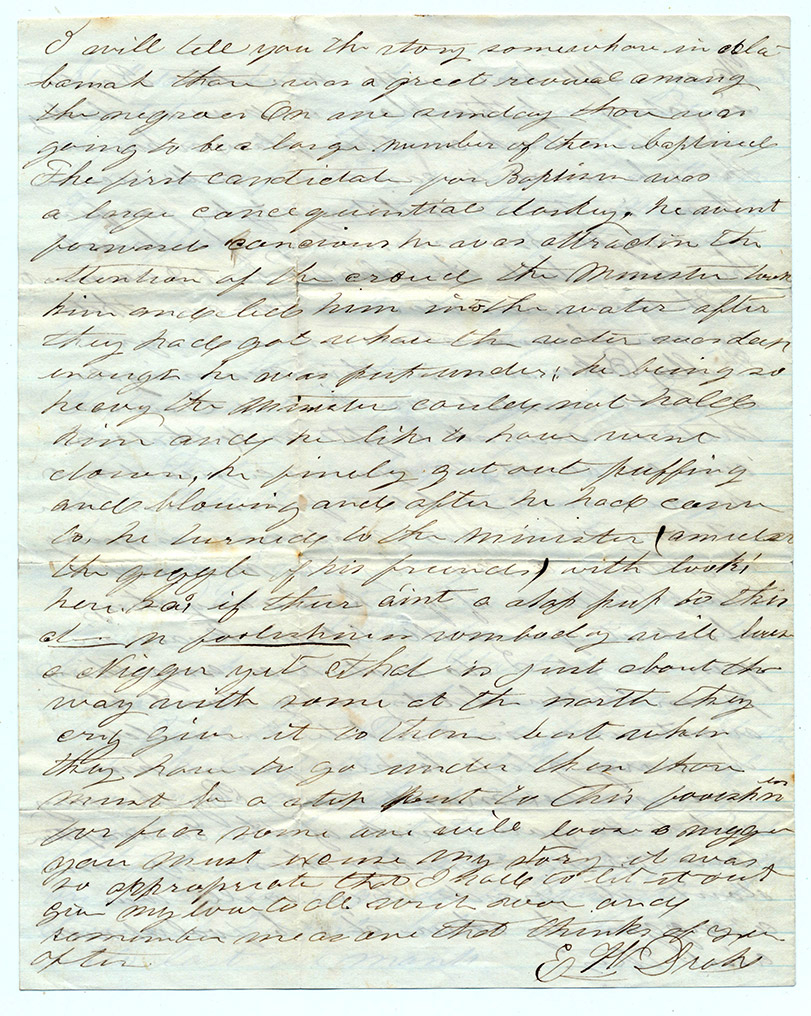 I will tell you the story somewhare in ala
bamah thare was a greet revival among
the negroes On one sunday thare was
going to be a large number of them baptised
The first candidate for Baptism was
a large concequential darkey. he went
forward concious he was attractin the
attention of the croud the Minister took
him and led him into the water after
they had got whare the water was deep
enough he was put under; he being so
heavy the Minister could not hold
him and he like to have went
down, he finely got out puffing
and blowing and after he had come
to, he turned to the minister (amidst
the giggle of his friends) with look'i
here sai if thier aint a stop put to this
d—n foolishness sombody will loose
a Nigger yet & that is just about the
way with some at the north they
cry give it to them but when
they have to go under then thare
must be a stop put to this foolishness
for fear some one will loose a nigger
you must excuse my story it was
so appropriate that I had to let it out
give my love to all write soon and
remember me as one that thinks of you
often
E W